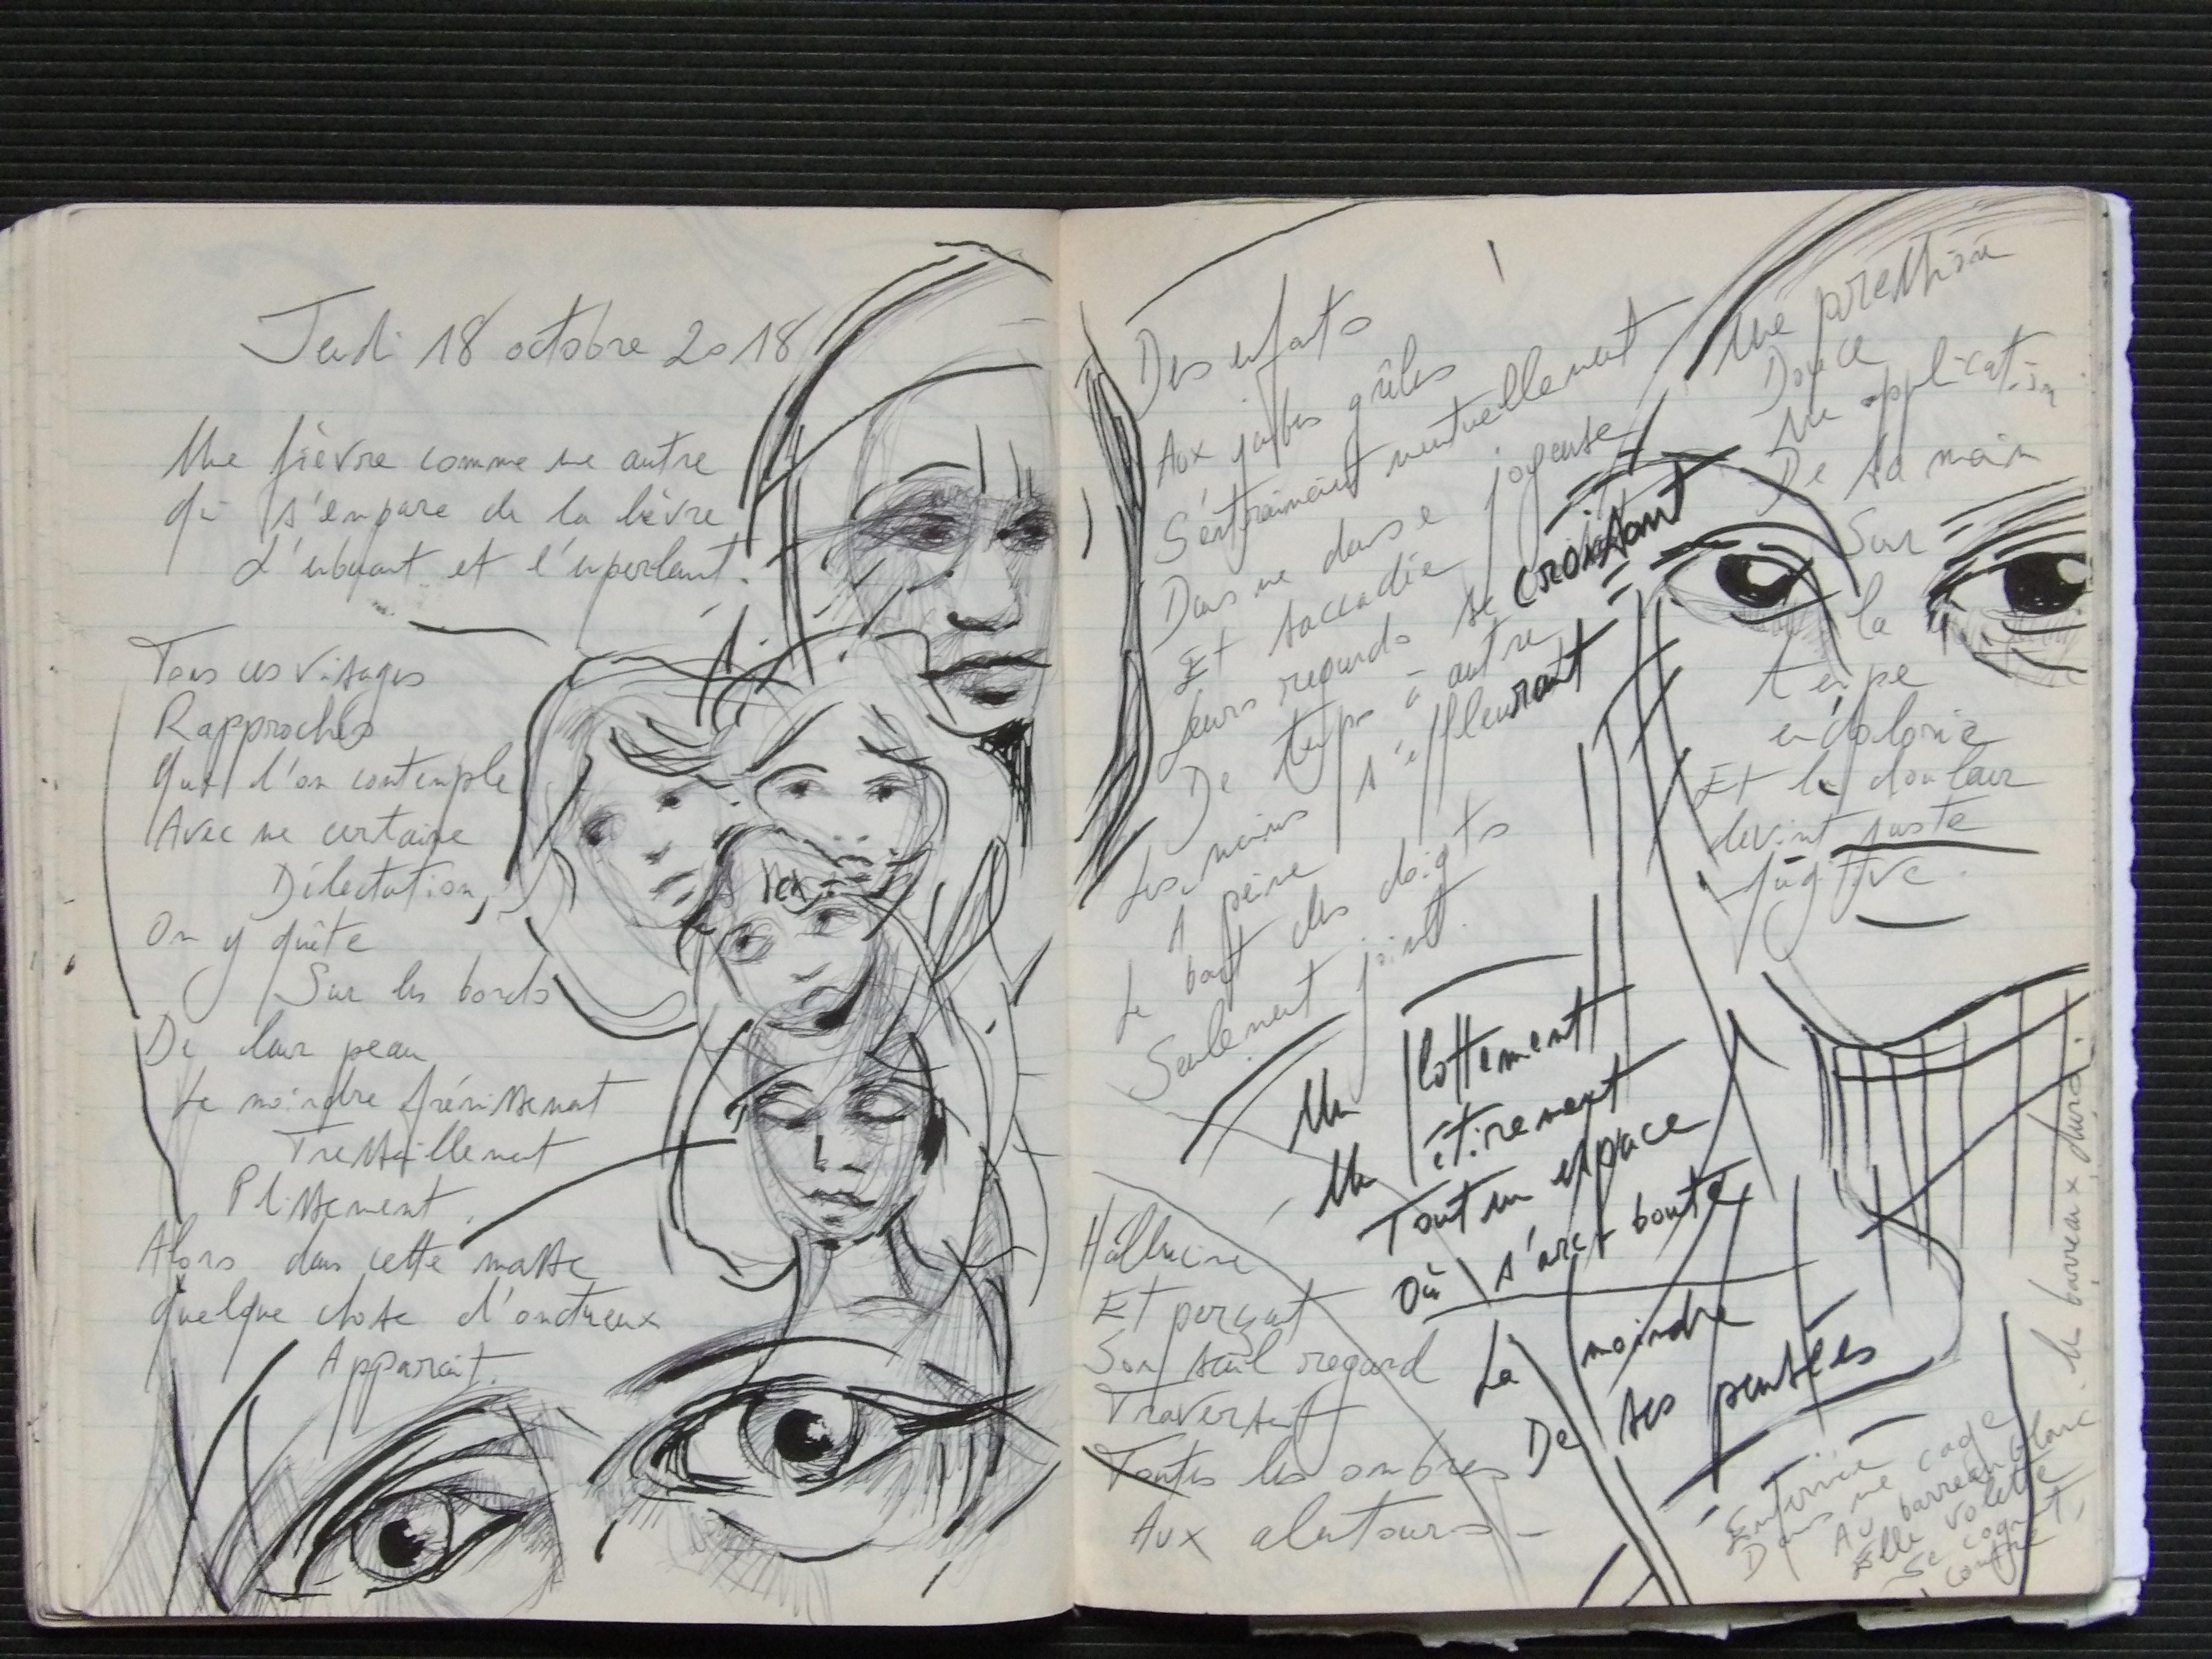 Jeudi 18 octobre 2018
Une fièvre comme une autre
qui s'empare de la lièvre
L'embuant et l'emperlant.
Tous ces visages
Rapprochés
Que l'on contemple
Avec une certaine
Délectation,
On y quête
Sur les bords
De leur peau
Le moindre frémissement
Tressaillement
Plissement.
Alors dans cette masse
quelque chose d'onctueux
Apparait.
Des enfants
Aux jambes grêles
S'entrainaient mutuellement
Dans une danse joyeuse
Et saccadée
Leurs regards se croisant
De temps à autre
Les mains s'effleurant
A peine
Le bout des doigts
Seulement joint.
Une pression
Douce
Une application
De sa main
Sur
la
tempe
endolorie
Et la douleur
devint juste
fugitive.
Un flottement
Un étirement
Tout un espace
Où s'arc-boute
La moindre
De ses pensées
Hallucine
Et perçant
Son seul regard
Traversait
Toutes les ombres
Aux alentours -
Enfermée
Dans une cage
Au barreau blanc
Elle volette
Se cognant,
contre
les barreaux durci.